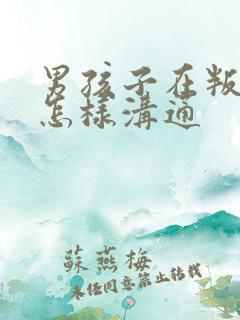 男孩子在叛
怎樣溝通
蘇燕梅
未经同意禁止转载